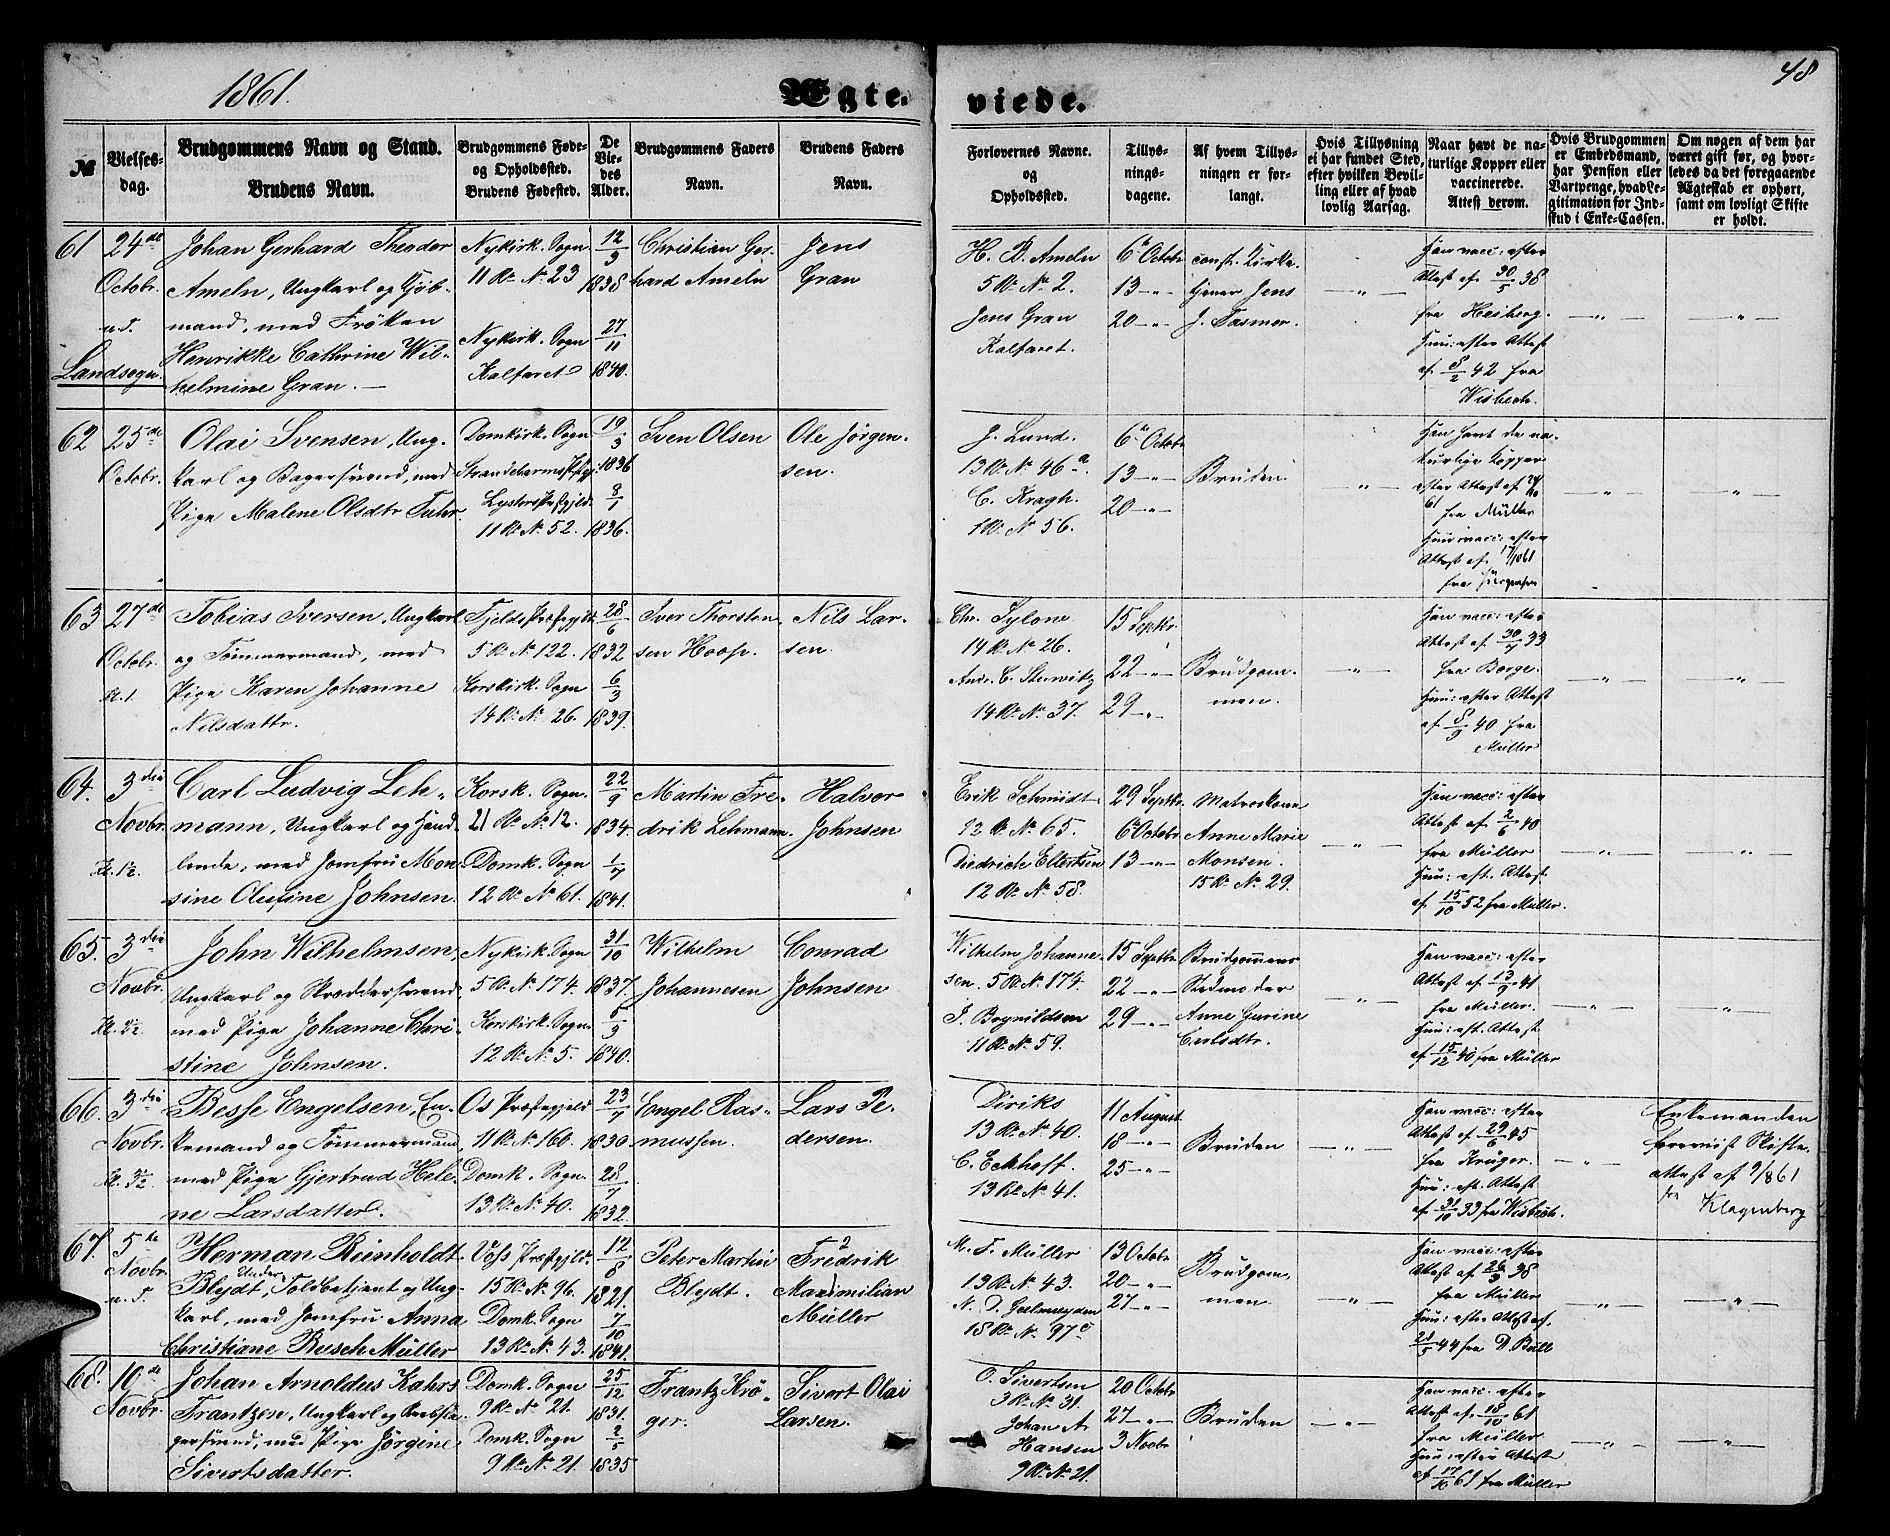 1861.
Ægte-
viede.
48
№
Vielses-
dag.
Brudgommens Navn og Stand.
Brudens Navn.
Brudgommens Føde-
og Opholdssted.
Brudens Fødested.
De
Vie-
des
Alder.
Brudgommens Faders
Navn.
Brudens Faders
Navn.
Forlovernes Navne.
og
Opholdssted.
Tillys-
nings-
dagene.
Af hvem Tillys-
ningen er for-
langt.
Hvis Tillysning
ei har fundet Sted,
efter hvilken Bevil-
ling eller af hvad
lovlig Aarsag.
Naar havt de na-
turlige Kopper eller
vaccinerede.
Attest derom.
Hvis Brudgommen
er Embedsmand,
har Pension eller
Vartpenge, hvad Le-
gitimation for Ind-
skud i Enke-Cassen.
Om nogen af dem har
været gift før, og hvor-
ledes da det foregaaende
Ægteskab er ophørt,
samt om lovligt Skifte
er holdt.
61
24de
Octobr.
u. T.
Landsogn.
Johan Gerhard Theodor
Ameln, Ungkarl og Kjøb-
mand, med Frøken
Henrikke Cathrine Wil-
helmine Gran. —
Nykirk. Sogn
11 R. N. 23
Nykirk. Sogn
Kalfaret
12/3
1838
27/11
1840.
Christian Ger-
hard Ameln
Jens
Gran
H. B. Ameln
5 R. N. 2.
Jens Gran
Kalfaret.
6 Octobr
13 — „ —
20 — „ —
const. Kirke-
tjener Jens
J. Tasmer.
— „ —
Han vacc: efter
Attest af 30/5 38
fra Heiberg.
Hun: efter Attest
af 8/2 42 fra
Wisbech.
— „ —
— „ —
62
25de
Octobr.
Olai Svensen, Ung-
karl og Bagersvend, med
Pige Malene Olsdtr Fuhr.
Domkirk. Sogn
Strandebarms Pstgj.
Lysters Præstgjeld.
11 R. N. 52.
19/3
1836
8/1
1836.
Sven Olsen
Ole Jørgen-
sen.
J. Lund.
13 R. N. 46 a.
C. Kragh.
1 R. N. 56.
6 Octobr
13 — „ —
20 — „ —
Bruden
— „ —
Han havt de na-
turlige Kopper
efter Attest af 24/10
61 fra Müller
Hun vacc: efter
Attest af 17/10 61
fra Jürgensen
— „ —
— „ —
63
27de
Octobr.
Kl. 1
Tobias Iversen, Ungkarl
og Tømmermand, med
Pige Karen Johanne
Nilsdattr.
Fjelds Præstegjeld.
5 R. N. 122.
Korskirk. Sogn
14 R. N. 26.
28/6
1832
6/3
1839.
Iver Thorsten-
sen Hoop.
Nils Lar-
sen.
Chr. Sylone
14 R. N. 26.
14 R. N. 37.
15 Septbr.
22 — „ —
29 — „ —
Brudgom-
men.
— „ —
Han vacc: efter
fra Borge.
Hun: efter Attest
af 8/9 40 fra
Müller
— „ —
— „ —
64.
3die
Novbr.
Kl. 1½
Carl Ludvig Leh-
mann, Ungkarl og Hand-
lende, med Jomfru Mon-
sine Olufine Johnsen.
Korsk. Sogn.
21 R. N. 12.
Domk. Sogn
12 R. N. 61.
22/9
1834.
1/7
1841.
Martin Fre-
drik Lehmann.
Halvor
Johnsen
Erik Schmidt
12 R. N. 65.
Diedrich Ellertsen
12 R. N. 58.
29 Septbr.
6 Octobr
13 — „ —
Matroskone
Anne Marie
Monsen.
15 R. N. 29.
— „ —
Han vacc: efter
Attest af 2/6 40
fra Müller
Hun: eft. Attest
af 15/10 52 fra Müller.
— „ —
— „ —
65.
3die
Novbr.
Kl. 3½
John Wilhelmsen,
Ungkarl og Skræddersvend,
med Pige Johanne Chri-
stine Johnsen.
Nykirk. Sogn
5 R. N. 174.
Korskirk. Sogn.
12 R. N. 5.
31/10
1837.
5/3
1840.
Wilhelm
Johannesen
Conrad
Johnsen
Wilhelm Johanne-
sen. 5 R. N. 174.
J. Bognildsen
11 R. N. 59.
15 Septbr
22 — „ —
29 — „ —
Brudgommens
Stedmoder
Anne Gurine
Carlsdtr.
— „ —
Han vacc: efter
Attest af 13/9 41
fra Müller.
Hun: eft. Attest
af 15/12 40 fra Müller
— „ —
— „ —
66.
3die
Novbr.
Kl. 3½
Besse Engelsen, En-
kemand og Tømmermand,
med Pige Gjertrud Hele-
ne Larsdatter.
Os Præstegjeld
11 R. N. 160.
Domk. Sogn.
13 R. N. 40.
23/7
1830
28/7
1832.
Engel Ras-
mussen.
Lars Pe-
dersen.
Diriks
13 R. N. 40.
C. Eckhoff.
13 R. N. 41.
11 August.
18 — „ —
25 — „ —
Bruden
— „ —
Han vacc: efter
Attest af 29/6 45
fra Krüger.
Hun: eft. Attest
af 31/10 33 fra Wisbech.
— „ —
Enkemanden
forevist Skifte-
attest af 9/861
fra Klagenberg
67.
5te
Novbr.
u. T.
Herman Reinholdt
Blydt, Under Toldbetjent og Ung-
karl, med Jomfru Anna
Christiane Busch Müller
Voss Præstegjeld.
15 R. N. 96.
Domk. Sogn
13 R. N. 43.
12/8
1821.
7/10
1841.
Peter Martin
Blydt.
Fredrik
Maximilian
Müller
M. F. Müller
13 R. N. 43.
N. D. Geelmuyden
18 R. N. 97 c
13 Octobr
20 — „ —
27 — „ —
Brudgom-
men
— „ —
Han vacc: efter
Attest af 26/3 38
fra Müller
Hun: efter Attest af.
28/5 44 fra D. Bull
— „ —
— „ —
68.
10de
Novbr.
Johan Arnoldus Kahrs
Frantzen, Ungkarl og Rebsla-
gersvend, med Pige Jørgine
Sivertsdatter.
Domk. Sogn
9 R. N. 21.
Domk. Sogn
9 R. N. 21.
25/12
1831.
2/5
1835
Frantz Krö-
ger.
Sivert Olai
Larsen.
O. Sivertsen
3 R. N. 31.
Johan A.
Hansen
9 R. N. 21.
20 Octobr
27 — „ —
3 Novbr
Bruden
— „ —
Han vacc. efter
Attest af 18/10 61
fra Müller
Hun: efter Attest
af 17/10 61 fra Müller
— „ —
— „ —